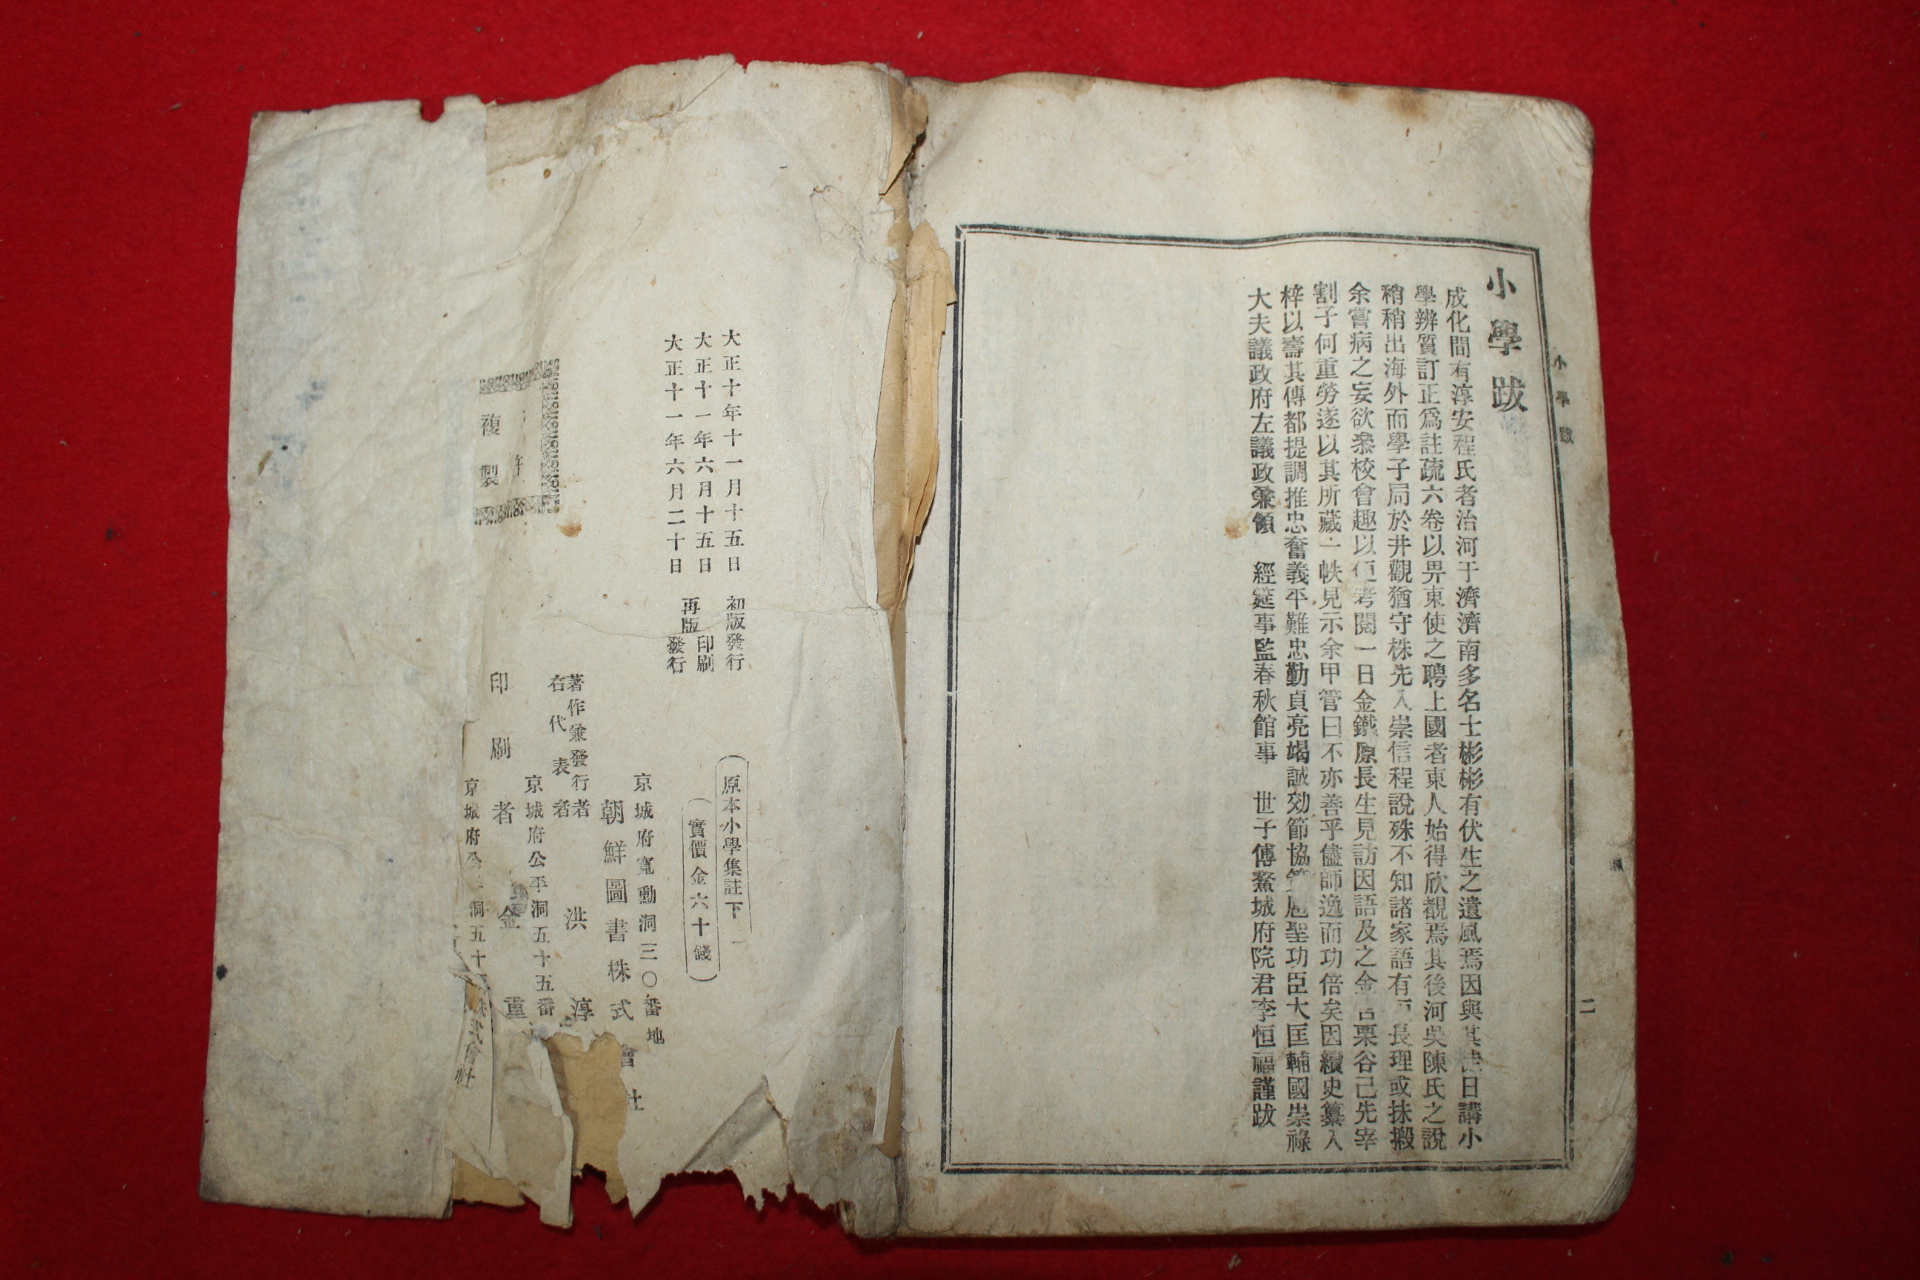 小學跋
小學跋
成化間有淳安程氏者治河于濟濟南多名士彬彬有伏生之遺風焉因與其佳日講小
學辨質訂正爲註疏六卷以畀東使之聘上國者東人始得欣覩焉其後河吳陳氏之說
稍稍出海外而學子局於井觀猶守株先入崇信程說殊不知諸家語有 長理或抹摋
余嘗病之妄欲叅校會趣以便考閱一日金鐵原長生見訪因語及之金 栗谷己先宰
割子何重勞遂以其所藏一帙見示余甲管曰不亦善乎儘師逸而功倍矣因續史纂入
梓以壽其傳都提調推忠奮義平難忠勤貞亮竭誠効節協策扈聖功臣大匡輔國崇祿
大夫議政府左議政兼領 經筵事監春秋館事 世子傅鰲城府院君李恒福謹跋
二
大正十年十一月十五日 初版發行
大正十一年六月十五日 再版印刷
大正十一年六月二十日 再版發行
原本小學集註下
(實價金六十錢)
京城府寬勳洞三〇番地
著作兼發行者 朝鮮圖書株式會社
京城府公平洞五十五番
右代表者 洪淳
京城府公 洞五十
印刷者 金重
株式會社
許
複製